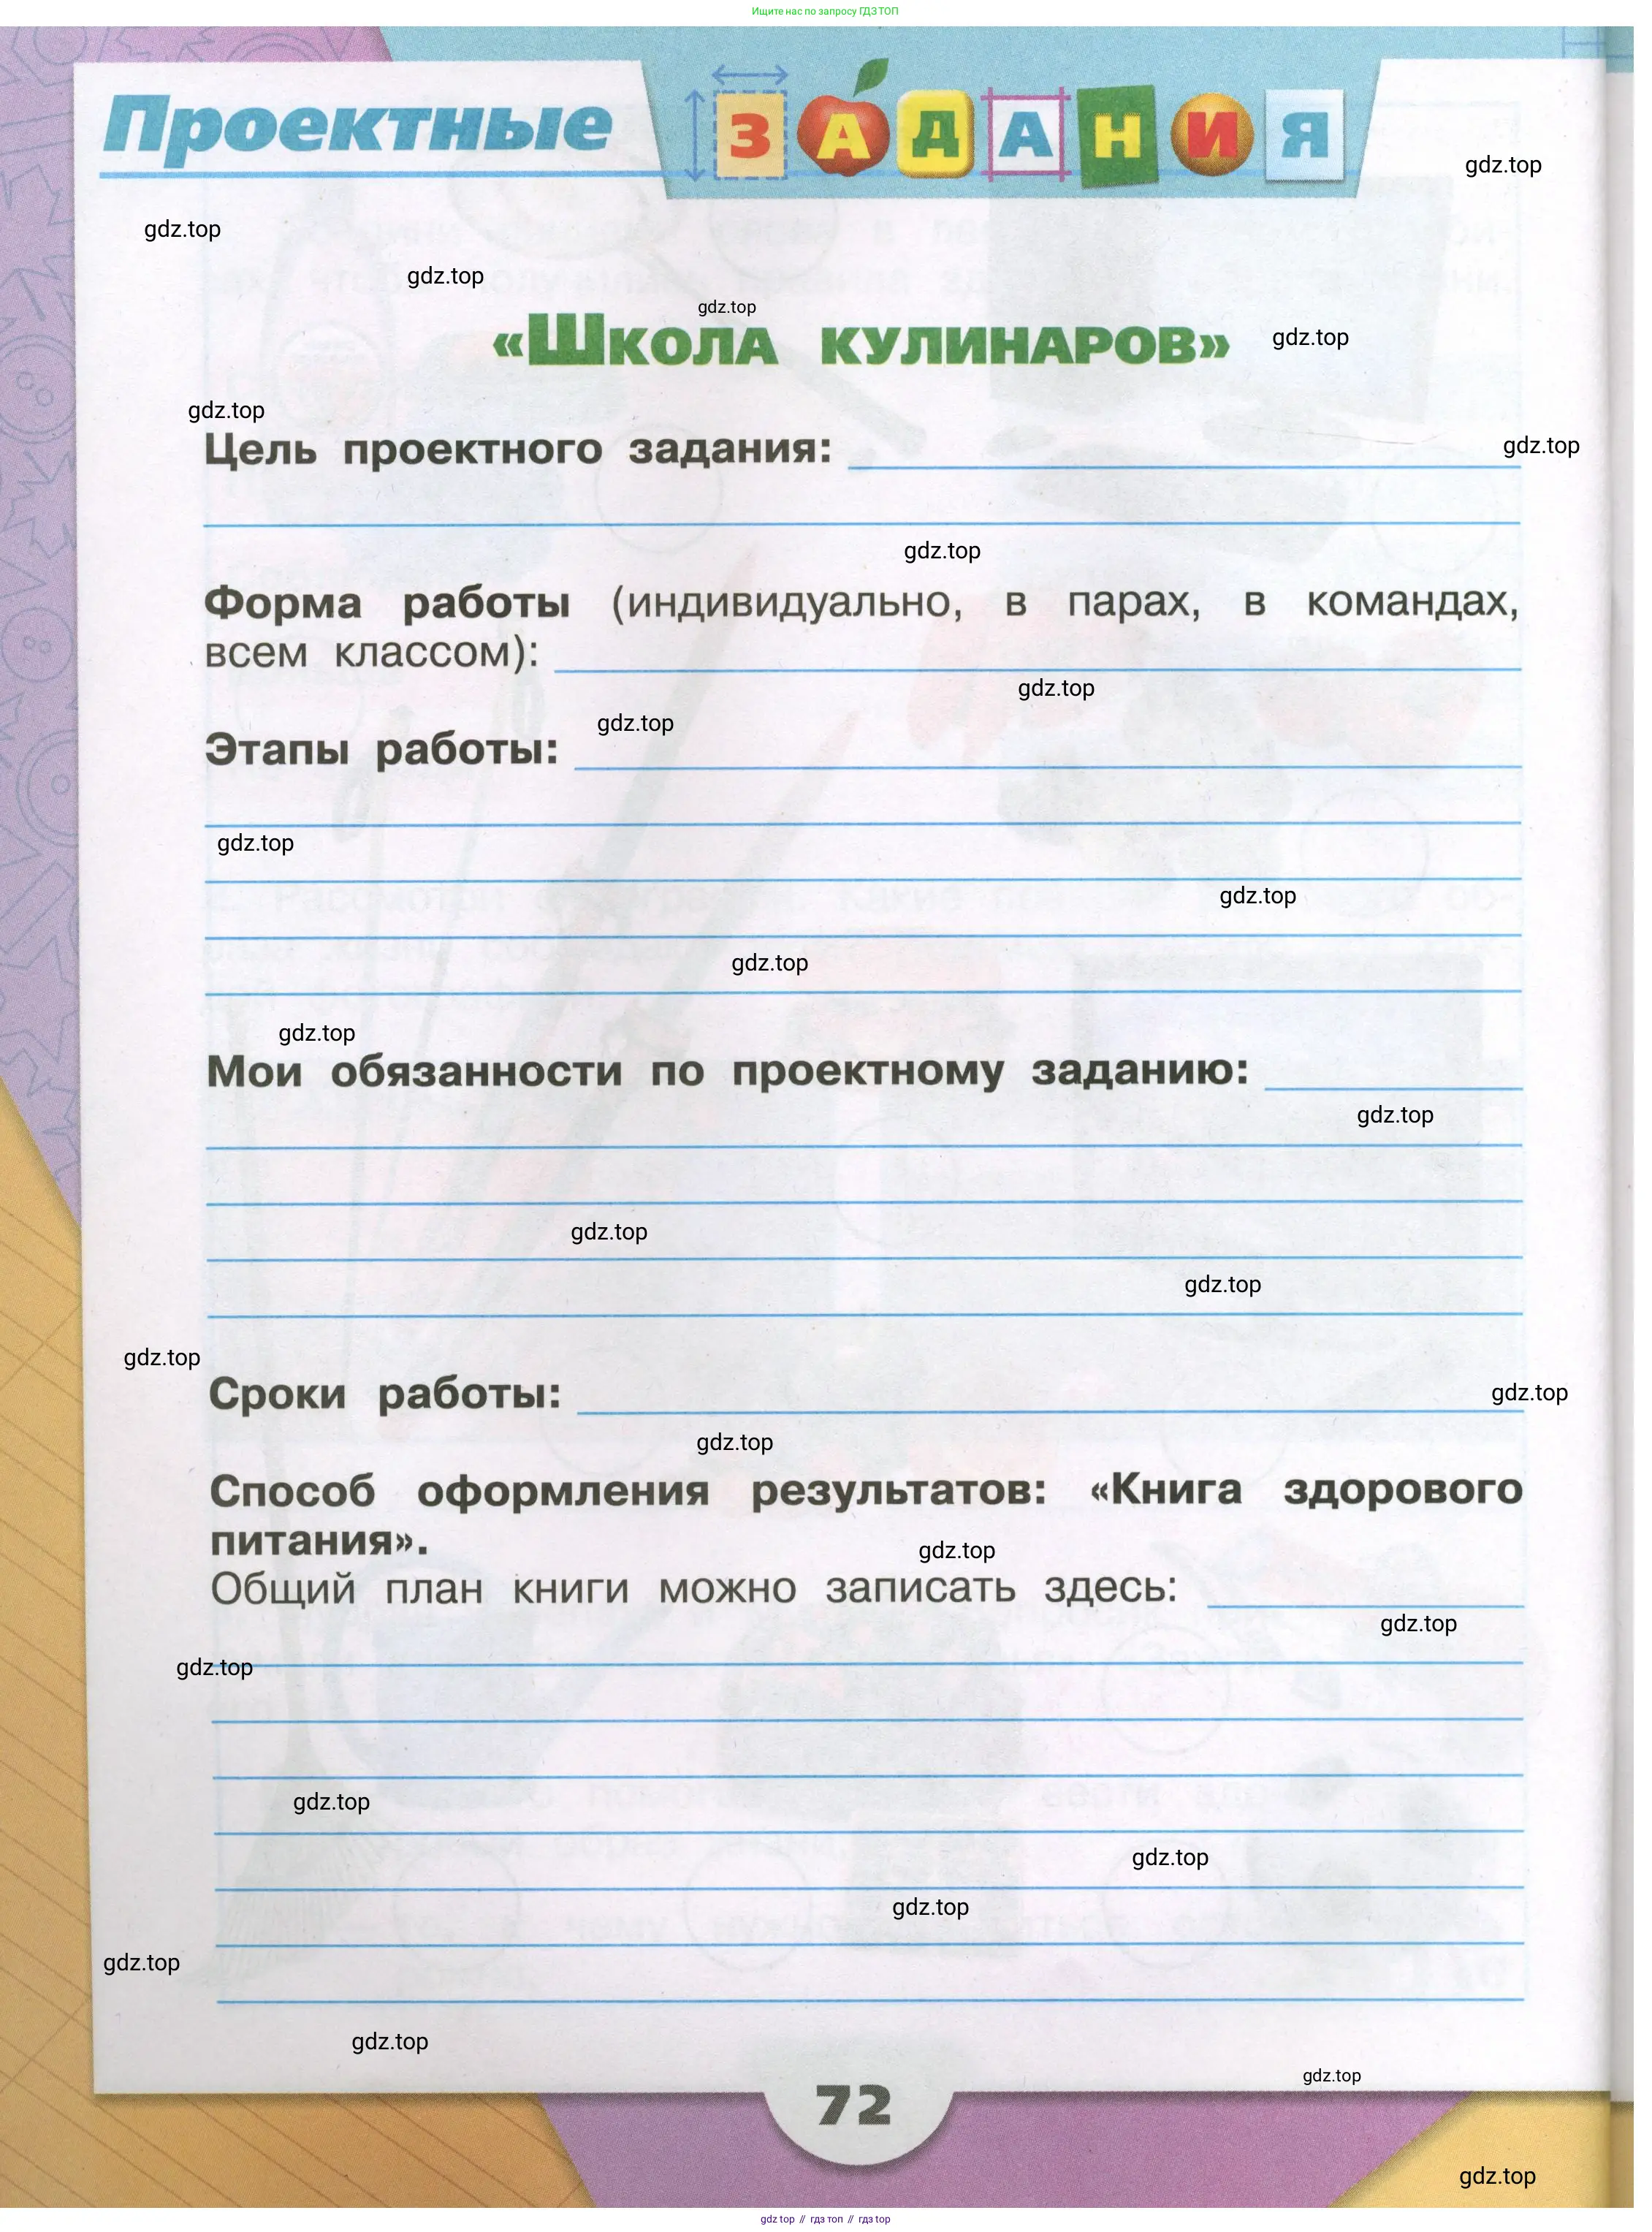 Ищите нас по запросу ГДЗ ТОП
Проектные ЗАДАНИЯ
gdz.top
gdz.top
gdz.top
gdz.top
«Школа кулинаров»
gdz.top
gdz.top
Цель проектного задания:
gdz.top
gdz.top
Форма работы (индивидуально, в парах, в командах,
всем классом):
gdz.top
gdz.top
Этапы работы:
gdz.top
gdz.top
gdz.top
gdz.top
Мои обязанности по проектному заданию:
gdz.top
gdz.top
gdz.top
gdz.top
Сроки работы:
gdz.top
gdz.top
Способ оформления результатов: «Книга здорового
питания».
gdz.top
Общий план книги можно записать здесь:
gdz.top
gdz.top
gdz.top
gdz.top
gdz.top
gdz.top
gdz.top
gdz.top
72
gdz.top
gdz top // гдз топ // гдз top